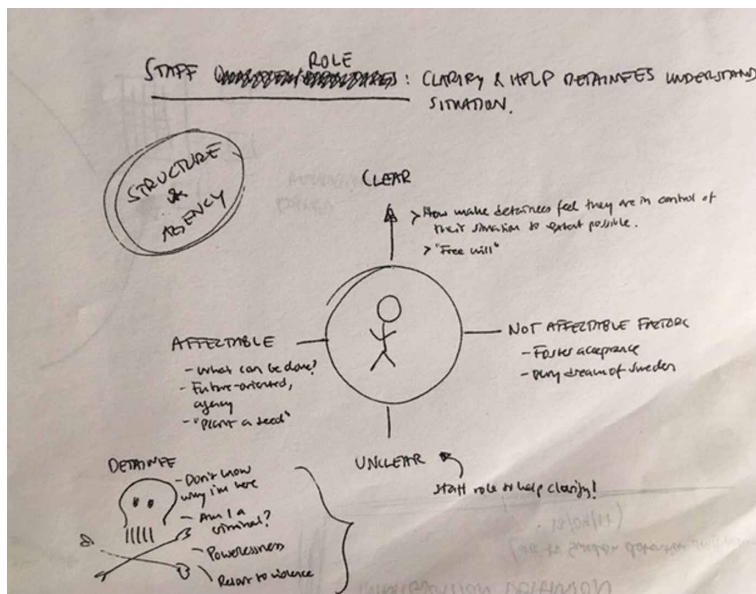 ROLE
STAFF : CLARIFY & HELP DETAINEES UNDERSTAND
SITUATION.
STRUCTURE
&
AGENCY
CLEAR
> How make detainees feel they are in control of
their situation to extent possible.
> "Free will"
AFFECTABLE
- What can be done?
- Future-oriented,
agency
- "Plant a seed"
NOT AFFECTABLE FACTORS
- Foster acceptance
- Bury dream of Sweden
UNCLEAR
Staff role to help clarify!
DETAINEE
- Don't know
why I'm here
- Am I a
criminal?
- Powerlessness
- Resort to violence